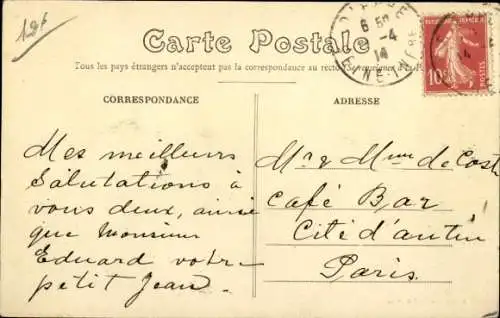 Carte Postale
Tous les pays étrangers n'acceptent pas la correspondance au recto
CORRESPONDANCE
ADRESSE
Mes meilleurs
Salutations à
vous deux, ainsi
que Monsieur
Eduard votre
petit Jean.
Mr & Mme de Cost
Café Bar
Cité d'antin
Paris
6
-4
14
SEINE-INFRE
10
POSTES